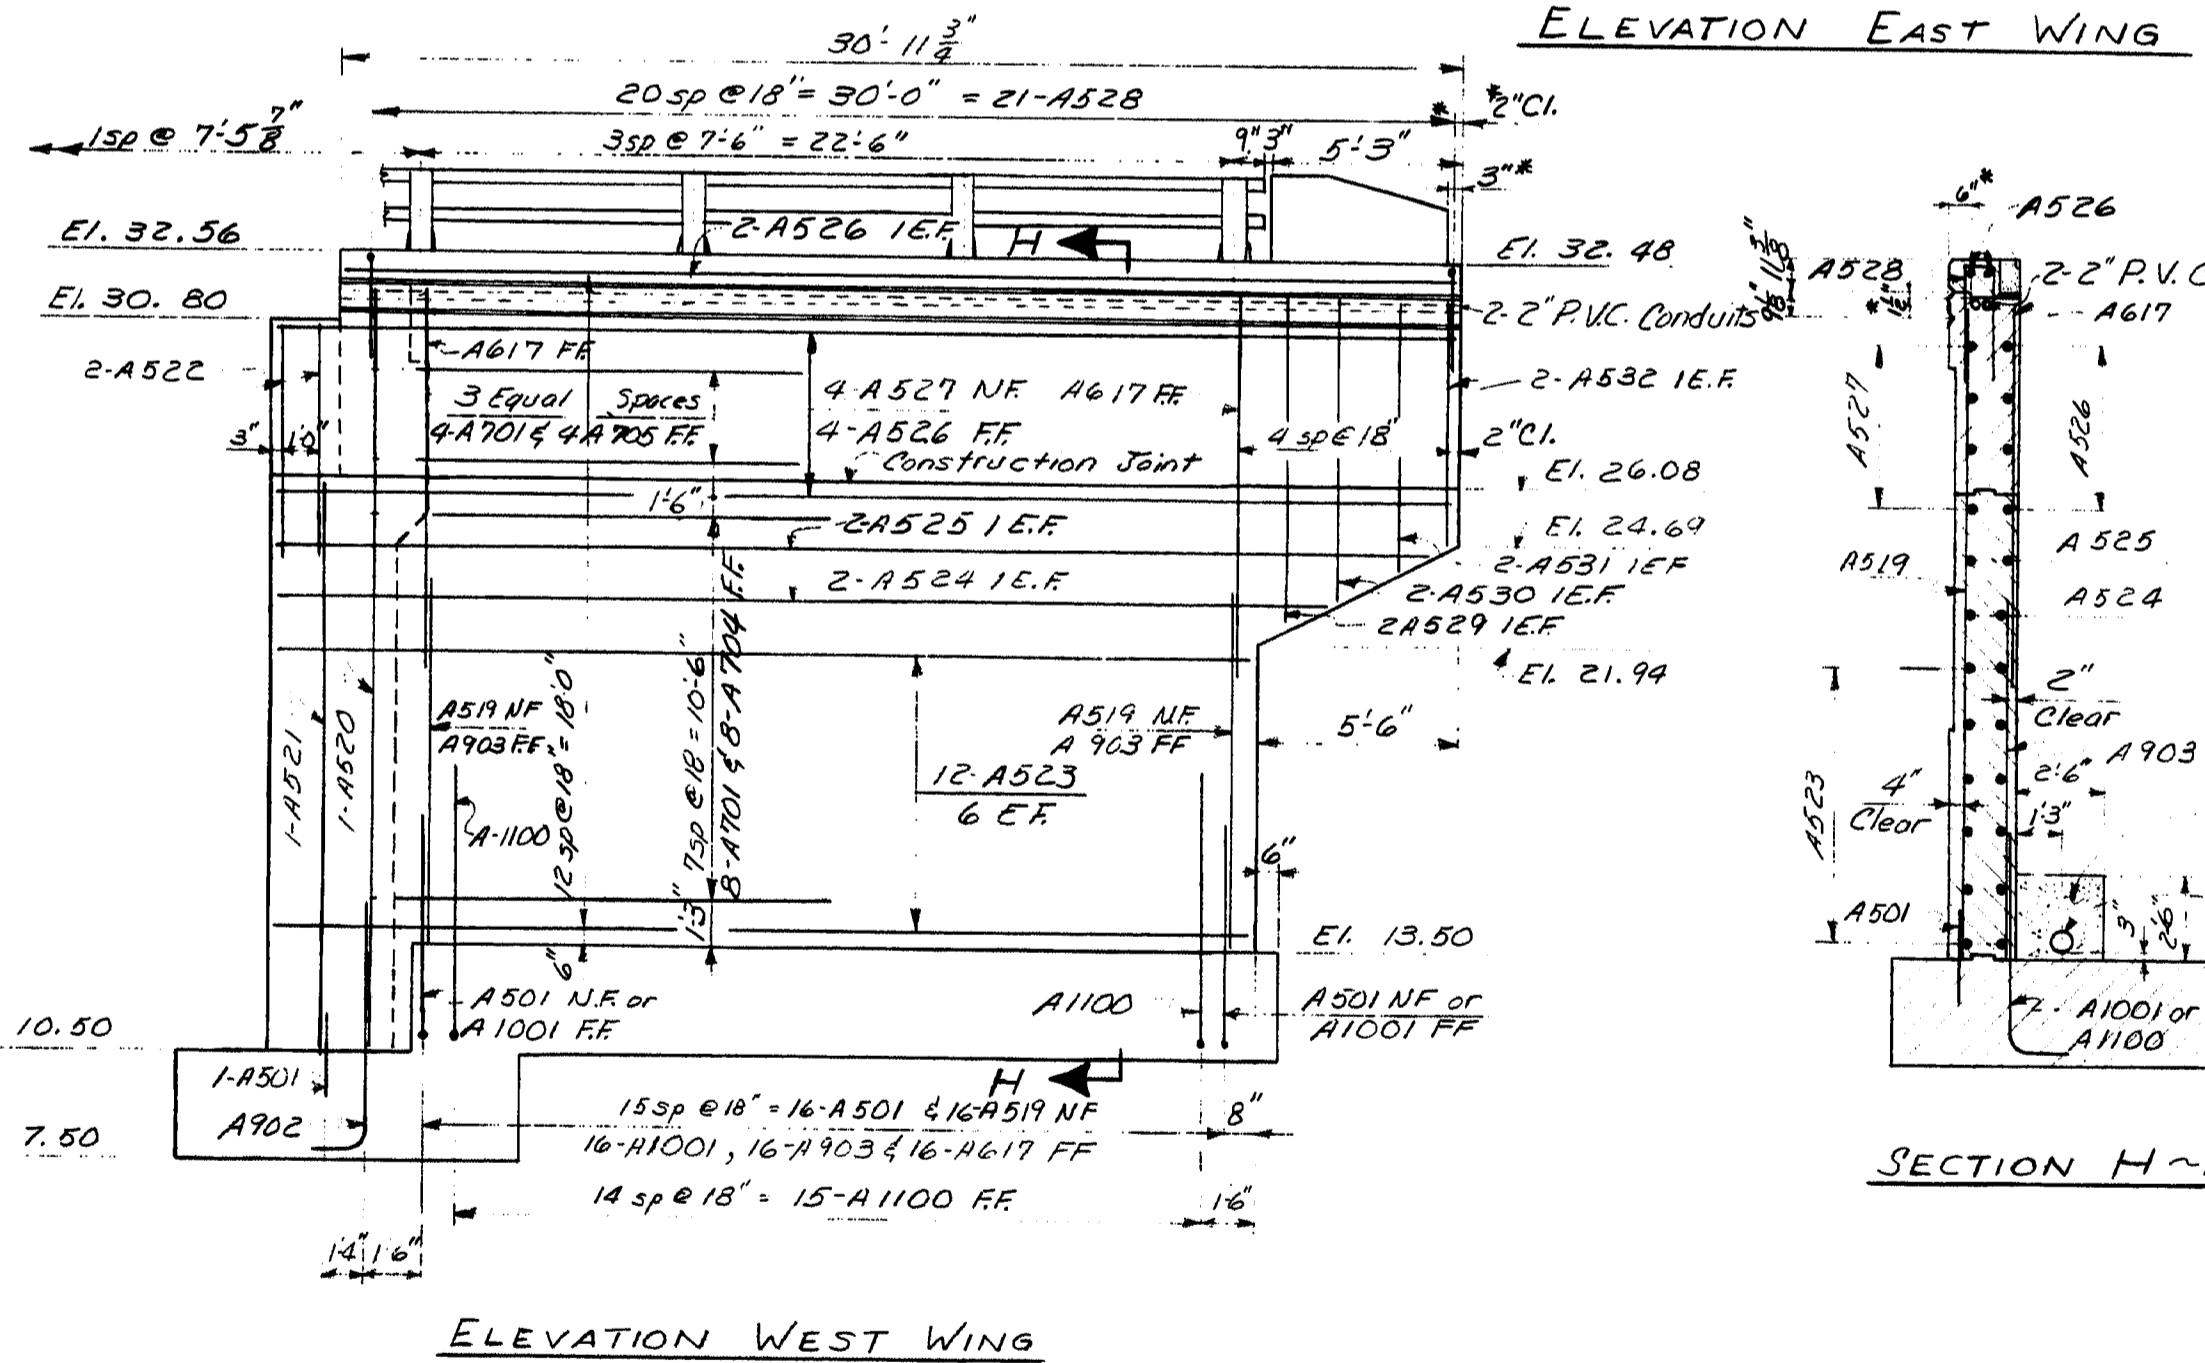 ELEVATION EAST WING
30'-11 3/4"
20 sp @ 18" = 30'-0" = 21-A528
* *2"Cl.
1sp @ 7'-5 7/8"
3sp @ 7'-6" = 22'-6"
9" 3"
5'-3"
3"*
El. 32.56
2-A526 1E.F.
H
El. 32.48
El. 30.80
2-2" P.V.C. Conduits
2-A522
A617 FF
3 Equal Spaces
4-A701 & 4A705 FF.
4-A527 NF. A617 FF
4-A526 F.F.
Construction Joint
4 sp @ 18"
2-A532 1E.F.
2"Cl.
3" 1'0"
El. 26.08
1'-6"
2-A525 1 E.F.
El. 24.69
2-A531 1EF
2-A524 1E.F.
2-A530 1E.F.
2A529 1E.F.
El. 21.94
1-A521
1-A520
A519 NF
A903 F.F.
12 sp @ 18" = 18'0"
7sp @ 18 = 10'-6"
8-A701 & 8-A704 F.F.
A519 NF.
A 903 FF
5'-6"
12-A523
6 E.F.
A-1100
6"
1'3"
6"
El. 13.50
A501 N.F. or
A1001 F.F.
A1100
A501 NF or
A1001 FF
10.50
1-A501
H
A902
7.50
15sp @ 18" = 16-A501 & 16-A519 NF
16-A1001, 16-A903 & 16-A617 FF
8"
14 sp @ 18" = 15-A1100 F.F.
1'-6"
1'4" 1'6"
ELEVATION WEST WING
6"*
A526
A528
9 1/8" 11 3/8"
* 1 1/2"
2-2" P.V.C
A617
A527
A526
A525
A519
A524
2"
Clear
A903
2'-6"
1'3"
A523
4"
Clear
A501
3"
2'-6"
A1001 or
A1100
SECTION H~